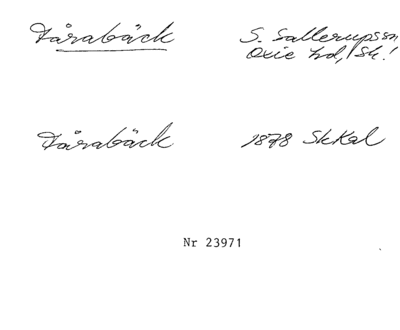 Tårabäck
S. Sallerups sn,
Oxie hd, Sk.!
Tårabäck
1878 SkKal
Nr 23971